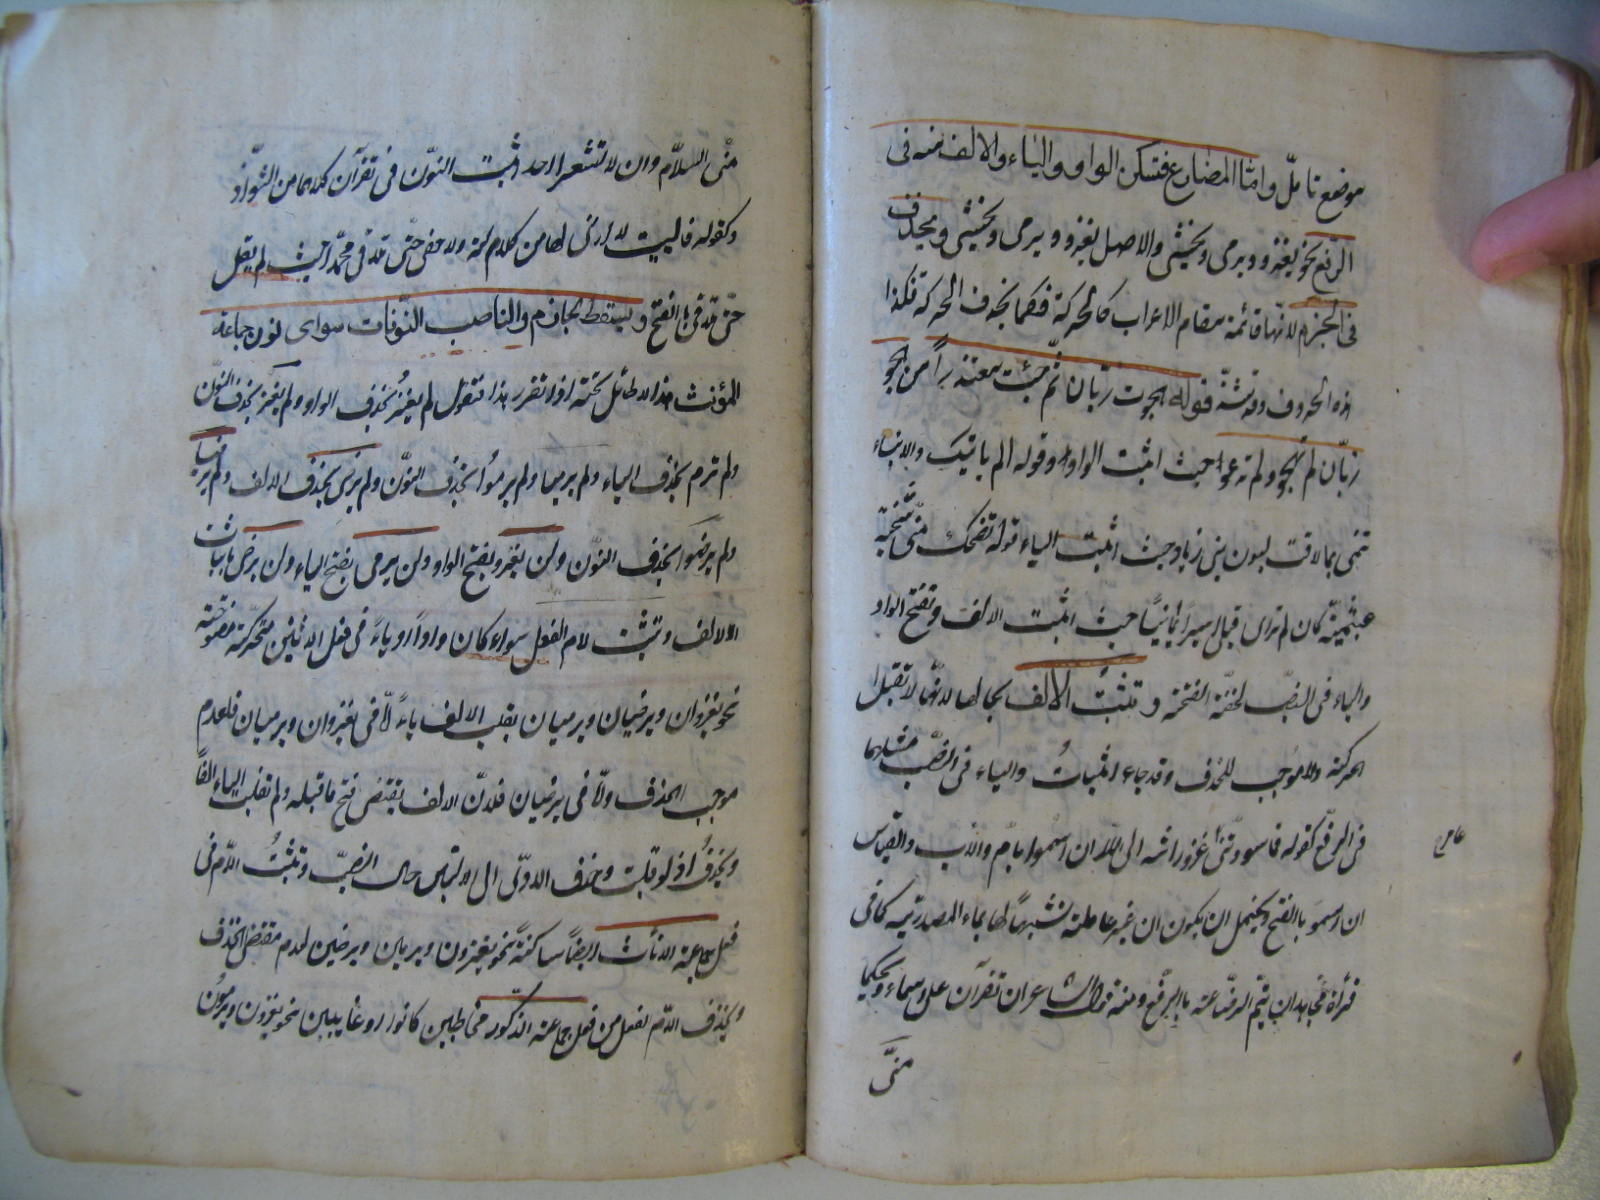 موضع تامل وامّا المضارع فتسكن الواو والياء والالف منه فى
الرفع نحو يغزو ويرمى ويخشى والاصل يغزو ويرمى ويخشى ويحذف
فى الجزم لانّها قائمة مقام الاعراب كالحركة فكما يحذف الحركة فكذا
هذه الحروف وقد شذّ قوله هجوت زبّان ثمّ جئت معتذراً من هجو
زبّان لم تهجو ولم تدعوا حيث اثبت الواو وقوله الم ياتيك والانباء
تنمى بما لاقت لبون بنى زياد حيث اثبت الياء قوله تضحك منّى شيخة
عبشميّة كان لم ترى قبلى اسيراً يمانيّاً حيث اثبت الالف وتفتح الواو
والياء فى النصب لخفّة الفتحة وتثبت الالف بحالها لانّها لا تقبل
الحركة ولا موجب للحذف وقد جاء اثبات والياء فى النصب مثلهما
فى الرفع كقوله فما سوّدتنى عن وراثة ابى اللّه ان اسموا بامّ والاب والقياس
عامر
ان اسمو بالفتح ويحتمل ان يكون ان غير عاملة تشبيهاً لها بماء المصدريّة كما فى
قرأة مجاهد ان يتمّ الرضاعة بالرفع ومنه قول الشاعر ان تقرآن على اسماء ويحكما
منّى
منّى السلام وان لا تشعرا احد اثبت النون فى تقرآن كلاهما من الشواذ
وكقوله فاليت لا ارثى لها من كلالة ولا حفى حتّى تلاقى محمّدا حيث لم يقل
حتّى تلاقى بالفتح ويسقط الجازم والناصب النونات سواى نون جماعة
المؤنث هذا لا طائل تحته اذا تقرر هذا فتقول لم يغز بحذف الواو ولم يغزوا بحذف النون
ولم ترم بحذف الياء ولم يرميا ولم يرموا بحذف النون ولم يرض بحذف الالف ولم يرضيا
ولم يرضوا بحذف النون ولن يغزو بفتح الواو ولن يرمى بفتح الياء ولن يرضى باثبات
الالف وتثبت لام الفعل سواء كان واواً او ياءً فى فعل الاثنين متحركة مفتوحة
نحو يغزوان ويرضيان ويرميان بقلب الالف ياءً امّا فى يغزوان ويرميان فلعدم
موجب الحذف وامّا فى يرضيان فلانّ الالف يقتضى فتح ما قبله ولم تقلب الياء الفاً
ويحذف اذ لو قلبت وحذف لادّى الى الالتباس حال النصب وتثبت اللام فى
فعل جماعة الاناث ايضاً ساكنة نحو يغزون ويرمين ويرضين لعدم مقتضى الحذف
ويحذف اللام لفعل من فعل جماعة الذكور مخاطبين كانوا او غائبين نحو يغزون ويرمون